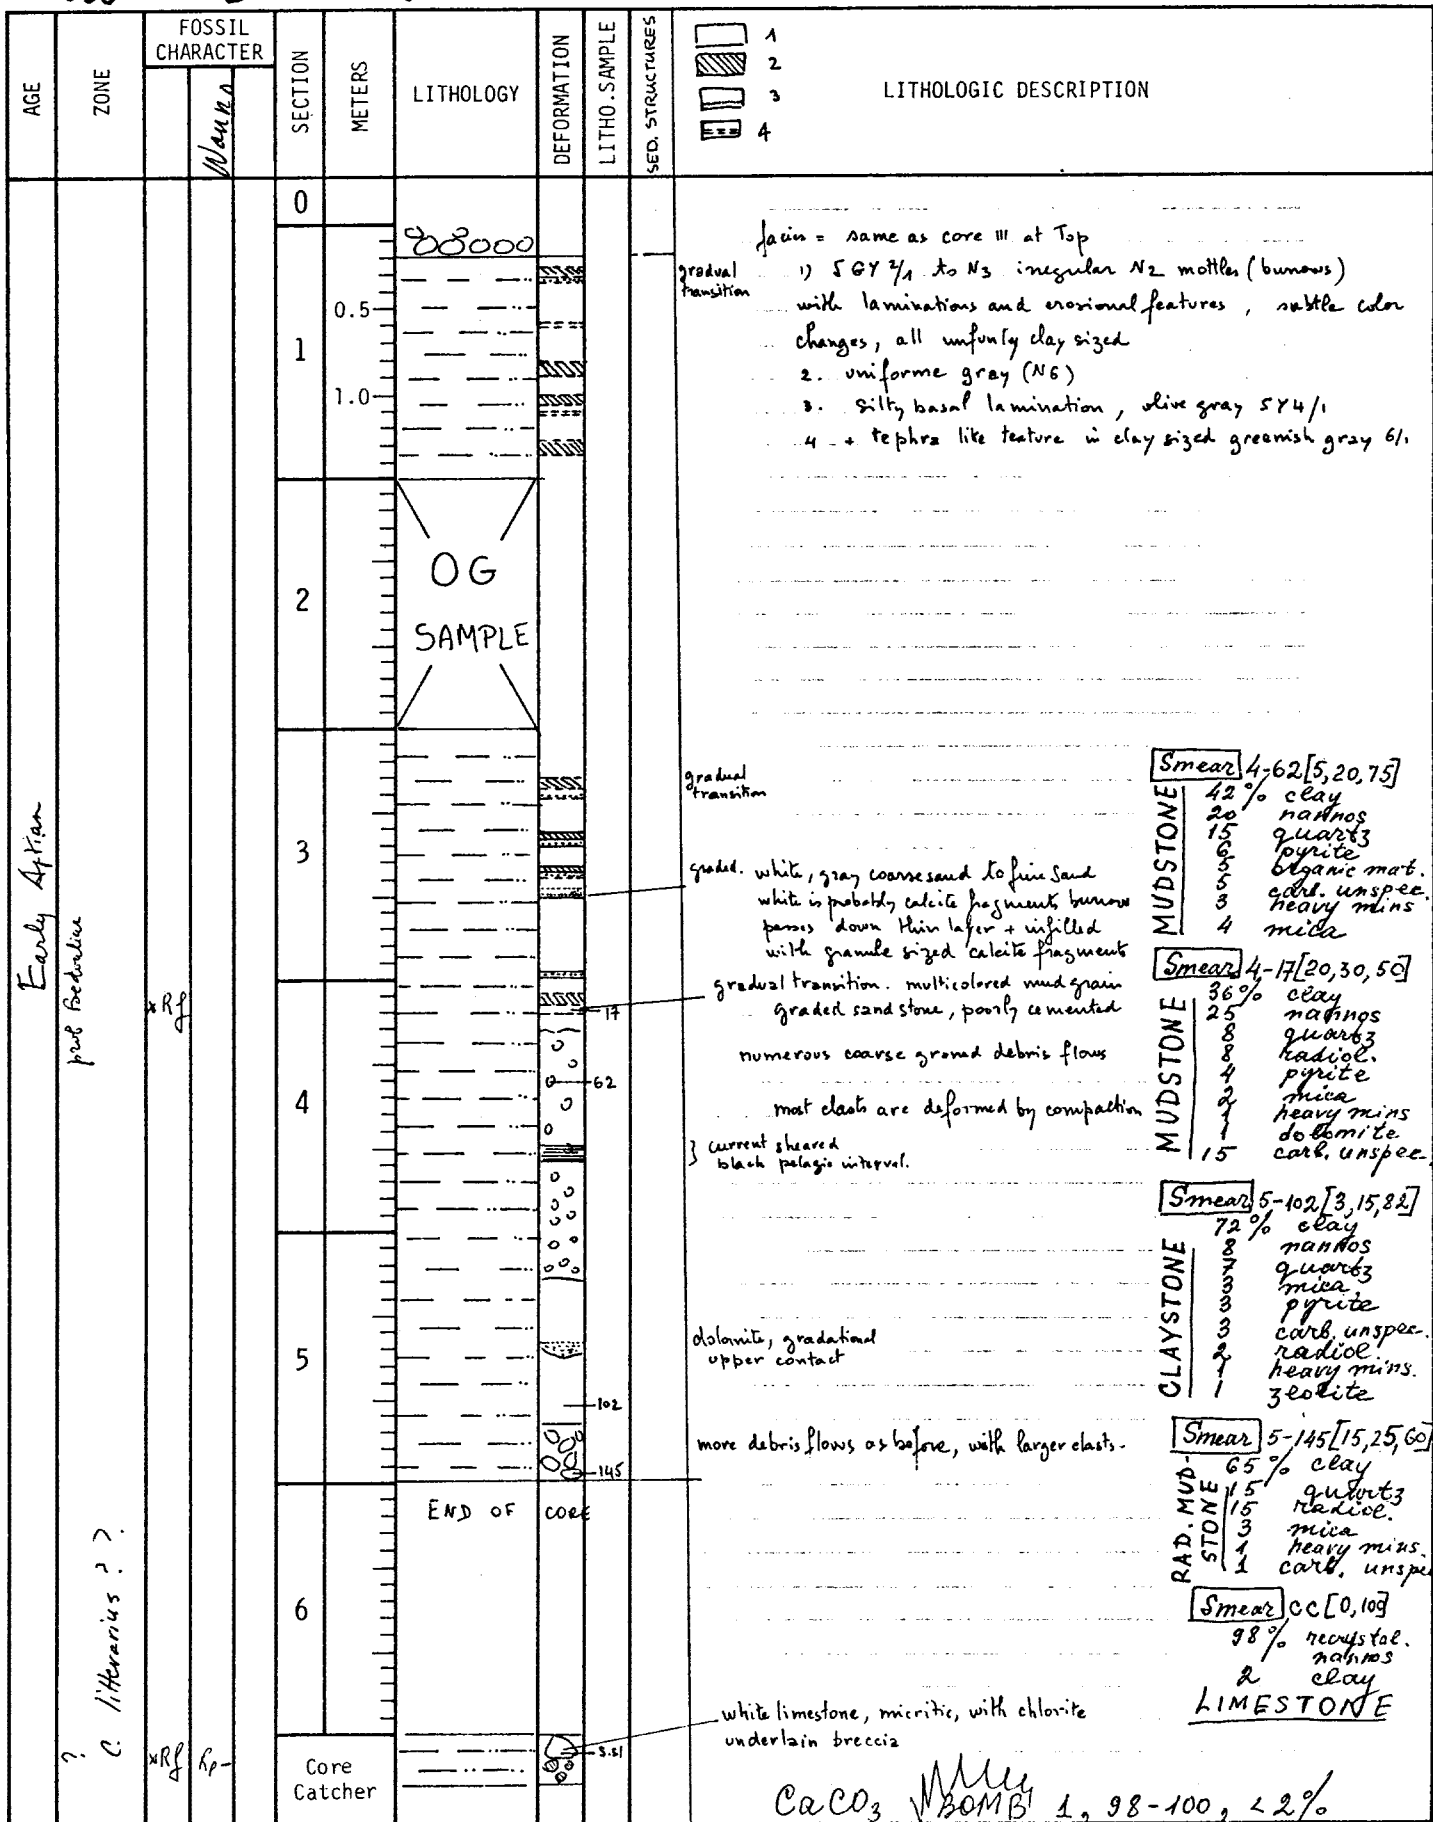 AGE
ZONE
FOSSIL
CHARACTER
Nanno
SECTION
METERS
LITHOLOGY
DEFORMATION
LITHO.SAMPLE
SED. STRUCTURES
1
2
3
4
LITHOLOGIC DESCRIPTION
0
facies = same as core III at Top
gradual
transition
1) 5GY 2/1 to N3 irregular N2 mottles (burrows)
with laminations and erosional features, subtle color
changes, all unfunly clay sized
2. uniforme gray (N6)
3. Silty basal lamination, olive gray 5Y4/1
4 - + tephra like texture in clay sized greenish gray 6/1
0.5
1
1.0
OG
SAMPLE
2
gradual
transition
3
graded. white, gray coarse sand to fine Sand
white is probably calcite fragments burrow
passes down thin layer + infilled
with granule sized calcite fragments
gradual transition. multicolored mud grain
graded sandstone, poorly cemented
17
numerous coarse grained debris flows
62
4
most clasts are deformed by compaction
} current sheared
black pelagic interval.
dolomite, gradational
upper contact
5
102
more debris flows as before, with larger clasts.
145
END OF CORE
6
white limestone, micritic, with chlorite
underlain breccia
Core
Catcher
s.sl
Early Aptian
xRf
? C. litterarius ? ?
xRf Rp-
Smear 4-62[5,20,75]
MUDSTONE
42% clay
20 nannos
15 quartz
6 pyrite
5 organic mat.
5 carb. unspec.
3 heavy mins
4 mica
Smear 4-17[20,30,50]
MUDSTONE
36% clay
25 nannos
8 quartz
8 radiol.
4 pyrite
2 mica
1 heavy mins
1 dolomite
15 carb. unspec.
Smear 5-102[3,15,82]
CLAYSTONE
72% clay
8 nannos
7 quartz
3 mica
3 pyrite
3 carb. unspec.
2 radiol.
1 heavy mins.
1 zeolite
Smear 5-145[15,25,60]
RAD. MUD-
STONE
65% clay
15 quartz
15 radiol.
3 mica
1 heavy mins.
1 carb. unspe
Smear CC[0,100]
98% recrystal.
nannos
2 clay
LIMESTONE
CaCO3 BOMB 1, 98-100, <2%